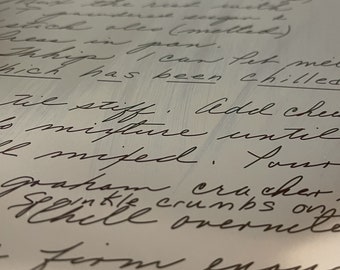 the rest with
powdered sugar &
(melted)
press in pan.
Whip 1 can Pet
which has been chilled
til stiff. Add
mixture until
mixed. Pour
graham cracker
Sprinkle crumbs on
Chill overnite
firm